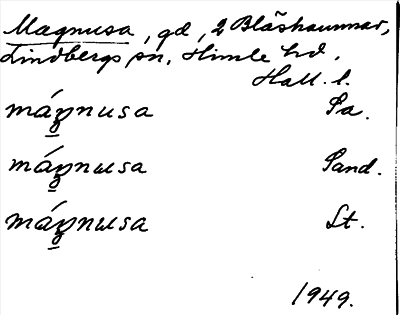 Magnusa, gd, 2 Blåshammar,
Lindbergs sn, Himle hd.
Hall. l.
mágnusa Sa.
mágnusa Sand.
mágnusa St.
1949.